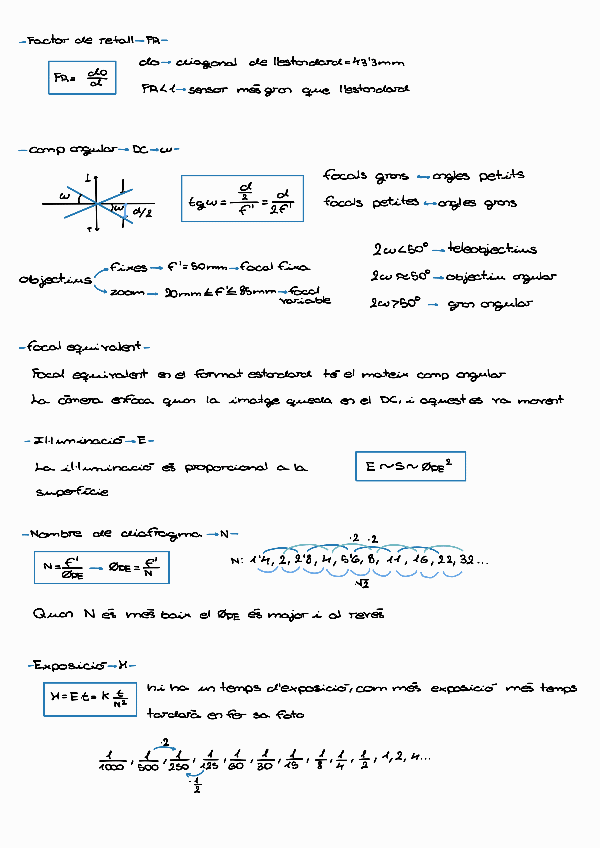 -Factor de retall→FR-
FR = do/d
do→ diagonal de l'estandard=43'3mm
FR<1→sensor més gran que l'estandard
-Camp angular→DC→ω-
ω ω d/2
tgω = (d/2)/f' = d/2f'
focals grans ↔ angles petits
focals petites ↔ angles grans
2ω<50° → teleobjectius
objectius
fixes → f'=50mm→focal fixa
2ω≈50° →objectiu angular
zoom → 20mm≤f'≤85mm→focal variable
2ω>50° → gran angular
-Focal equivalent-
Focal equivalent en el format estandard té el mateix camp angular
La càmera enfoca quan la imatge queda en el DC, i aquest es va movent
-Il·luminació→E-
La il·luminació és proporcional a la
superfície
E ~ S ~ ØPE²
-Nombre de diafragma→N-
·2 ·2
N = f'/ØPE → ØPE = f'/N
N: 1'4, 2, 2'8, 4, 5'6, 8, 11, 16, 22, 32...
√2
Quan N és més baix el ØPE és major i al revés
-Exposició→H-
H = E t = K t/N²
hi ha un temps d'exposició, com més exposició més temps
tardarà en fer sa foto
·2
1/1000, 1/500, 1/250, 1/125, 1/60, 1/30, 1/15, 1/8, 1/4, 1/2, 1, 2, 4...
·1/2